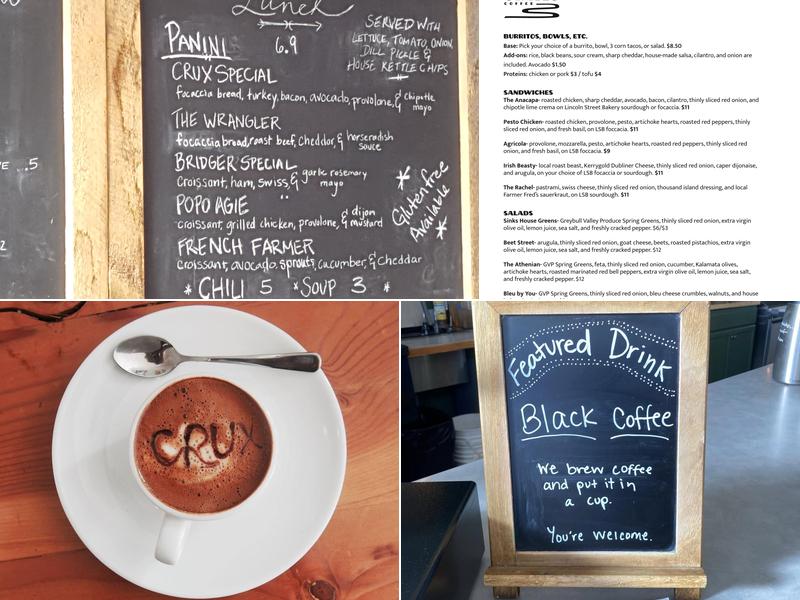 Lunch
PANINI 6.9
SERVED WITH
LETTUCE, TOMATO, ONION,
DILL PICKLE &
HOUSE KETTLE CHIPS
CRUX SPECIAL
focaccia bread, turkey, bacon, avocado, provolone, & chipotle mayo
THE WRANGLER
focaccia bread, roast beef, cheddar, & horseradish sauce
BRIDGER SPECIAL
Croissant, ham, swiss, & garlic rosemary mayo
POPO AGIE
croissant, grilled chicken, provolone, & dijon mustard
FRENCH FARMER
croissant, avocado, sprouts, cucumber, & Cheddar
* CHILI 5 * SOUP 3 *
* Gluten free
Available *
..5
2
COFFEE
BURRITOS, BOWLS, ETC.
Base: Pick your choice of a burrito, bowl, 3 corn tacos, or salad. $8.50
Add-ons: rice, black beans, sour cream, sharp cheddar, house-made salsa, cilantro, and onion are
included. Avocado $1.50
Proteins: chicken or pork $3 / tofu $4
SANDWICHES
The Anacapa- roasted chicken, sharp cheddar, avocado, bacon, cilantro, thinly sliced red onion, and
chipotle lime crema on Lincoln Street Bakery sourdough or focaccia. $11
Pesto Chicken- roasted chicken, provolone, pesto, artichoke hearts, roasted red peppers, thinly
sliced red onion, and fresh basil, on LSB foccacia. $11
Agricola- provolone, mozzarella, pesto, artichoke hearts, roasted red peppers, thinly sliced red
onion, and fresh basil, on LSB foccacia. $9
Irish Beasty- local roast beast, Kerrygold Dubliner Cheese, thinly sliced red onion, caper dijonaise,
and arugula, on your choice of LSB focaccia or sourdough. $11
The Rachel- pastrami, swiss cheese, thinly sliced red onion, thousand island dressing, and local
Farmer Fred's sauerkraut, on LSB sourdough. $11
SALADS
Sinks House Greens- Greybull Valley Produce Spring Greens, thinly sliced red onion, extra virgin
olive oil, lemon juice, sea salt, and freshly cracked pepper. $6/$3
Beet Street- arugula, thinly sliced red onion, goat cheese, beets, roasted pistachios, extra virgin
olive oil, lemon juice, sea salt, and freshly cracked pepper. $12
The Athenian- GVP Spring Greens, feta, thinly sliced red onion, cucumber, Kalamata olives,
artichoke hearts, roasted marinated red bell peppers, extra virgin olive oil, lemon juice, sea salt,
and freshly cracked pepper. $12
Bleu by You- GVP Spring Greens, thinly sliced red onion, bleu cheese crumbles, walnuts, and house
CRUX
Featured Drink
Black Coffee
We brew coffee
and put it in
a cup.
You're welcome.